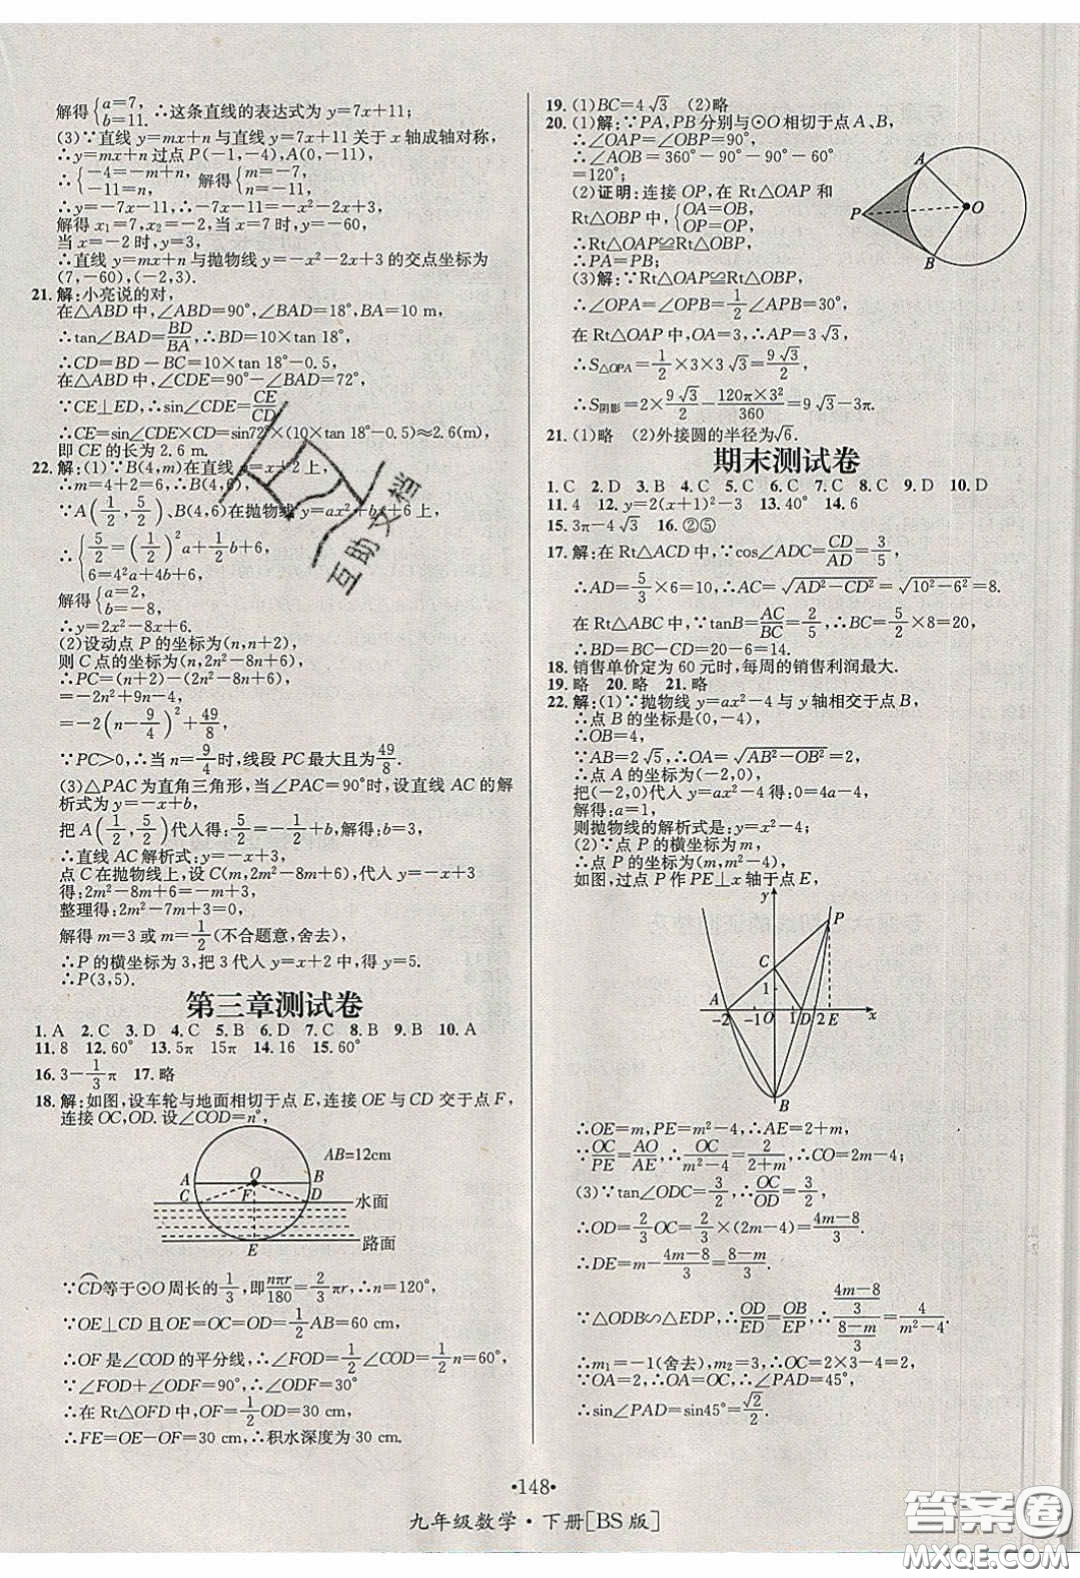 解得{a=7, b=11. ∴这条直线的表达式为 y=7x+11;
(3)∵直线 y=mx+n与直线 y=7x+11 关于 x 轴成轴对称,
∴y=mx+n过点 P(-1,-4),A(0,-11),
∴{-4=-m+n, -11=n. 解得{m=-7, n=-11.
∴y=-7x-11,∴-7x-11=-x²-2x+3,
解得 x₁=7,x₂=-2,此时 y=-60,
当 x=-2 时,y=3,
∴直线 y=mx+n与抛物线 y=-x²-2x+3 的交点坐标为
(7,-60),(-2,3).
21. 解:小亮说的对,
在△ABD 中,∠ABD=90°,∠BAD=18°,BA=10 m,
∴tan∠BAD=BD/BA,∴BD=10×tan 18°,
∴CD=BD-BC=10×tan 18°-0.5,
在△ABD 中,∠CDE=90°-∠BAD=72°,
∵CE⊥ED,∴sin∠CDE=CE/CD,
∴CE=sin∠CDE×CD=sin72°×(10×tan 18°-0.5)≈2.6(m),
即 CE 的长为 2.6 m.
22. 解:(1)∵B(4,m)在直线 y=x+2 上,
∴m=4+2=6,∴B(4,6),
∵A(1/2,5/2)、B(4,6)在抛物线 y=ax²+bx+6 上,
∴{5/2=(1/2)²a+1/2b+6, 6=4²a+4b+6,
解得{a=2, b=-8,
∴y=2x²-8x+6.
(2)设动点 P 的坐标为(n,n+2),
则 C 点的坐标为(n,2n²-8n+6),
∴PC=(n+2)-(2n²-8n+6)
=-2n²+9n-4,
=-2(n-9/4)²+49/8,
∵PC>0,∴当 n=9/4时,线段 PC 最大且为49/8.
(3)△PAC 为直角三角形,当∠PAC=90°时,设直线 AC 的解
析式为 y=-x+b,
把 A(1/2,5/2)代人得:5/2=-1/2+b,解得:b=3,
∴直线 AC 解析式:y=-x+3,
点 C 在抛物线上,设 C(m,2m²-8m+6),代人 y=-x+3
得:2m²-8m+6=-m+3,
整理得:2m²-7m+3=0,
解得 m=3 或 m=1/2(不合题意,舍去),
∴P 的横坐标为 3,把 3 代人 y=x+2 中,得 y=5.
∴P(3,5).
第三章测试卷
1. A 2. C 3. D 4. C 5. B 6. D 7. C 8. B 9. B 10. A
11. 8 12. 60° 13. 5π 15π 14. 16 15. 60°
16. 3-1/3π 17. 略
18. 解:如图,设车轮与地面相切于点 E,连接 OE 与 CD 交于点 F,
连接 OC,OD. 设∠COD=n°,
AB=12cm
A O B
C F D 水面
E 路面
∵CD等于⊙O 周长的1/3,即nπr/180=2/3πr,∴n=120°,
∵OE⊥CD 且OE=OC=OD=1/2AB=60 cm,
∴OF 是∠COD 的平分线,∴∠FOD=1/2∠COD=1/2n=60°,
∵∠FOD+∠ODF=90°,∴∠ODF=30°
∴在 Rt△OFD 中,OF=1/2OD=30 cm,
∴FE=OE-OF=30 cm,∴积水深度为 30 cm.
19. (1)BC=4√3 (2)略
20. (1)解:∵PA,PB 分别与⊙O 相切于点 A、B,
∴∠OAP=∠OBP=90°,
∴∠AOB=360°-90°-90°-60°
=120°;
(2)证明:连接 OP,在 Rt△OAP 和
Rt△OBP 中,{OA=OB, OP=OP,
∴Rt△OAP≌Rt△OBP,
∴PA=PB;
(3)解:∵Rt△OAP≌Rt△OBP,
∴∠OPA=∠OPB=1/2∠APB=30°,
在 Rt△OAP 中,OA=3,∴AP=3√3,
∴S△OPA=1/2×3×3√3=9√3/2,
∴S阴影=2×9√3/2-120π×3²/360=9√3-3π.
A
P O
B
21. (1)略 (2)外接圆的半径为√6.
期末测试卷
1. C 2. D 3. B 4. C 5. C 6. C 7. C 8. C 9. D 10. D
11. 4 12. y=2(x+1)²-3 13. 40° 14. 6
15. 3π-4√3 16. ②⑤
17. 解:在 Rt△ACD 中,∵cos∠ADC=CD/AD=3/5,
∴AD=5/3×6=10,∴AC=√AD²-CD²=√10²-6²=8.
在 Rt△ABC 中,∵tanB=AC/BC=2/5,∴BC=5/2×8=20,
∴BD=BC-CD=20-6=14.
18. 销售单价定为 60 元时,每周的销售利润最大.
19. 略 20. 略 21. 略
22. 解:(1)∵抛物线 y=ax²-4 与 y轴相交于点 B,
∴点 B 的坐标是(0,-4),
∴OB=4,
∵AB=2√5,∴OA=√AB²-OB²=2,
∴点 A 的坐标为(-2,0),
把(-2,0)代人 y=ax²-4 得:0=4a-4,
解得:a=1,
则抛物线的解析式是:y=x²-4;
(2)∵点 P 的横坐标为 m,
∴点 P 的坐标为(m,m²-4),
如图,过点 P 作 PE⊥x 轴于点 E,
y
P
C
1
A
-2 -1 O 1 D 2 E x
B
∴OE=m,PE=m²-4,∴AE=2+m,
∵OC/PE=AO/AE,∴OC/m²-4=2/2+m,∴CO=2m-4;
(3)∵tan∠ODC=3/2,∴OC/OD=3/2,
∴OD=2/3OC=2/3×(2m-4)=4m-8/3,
∴DE=m-4m-8/3=8-m/3,
∵△ODB∽△EDP,∴OD/ED=OB/EP,∴(4m-8/3)/(8-m/3)=4/m²-4,
∴m₁=-1(舍去),m₂=3,
∵OA=2,∴OC=2,∴∠PAD=45°,
∴sin∠PAD=sin45°=√2/2.
互助文档
•148•
九年级数学·下册[BS版]
答案圈
MXQE.COM